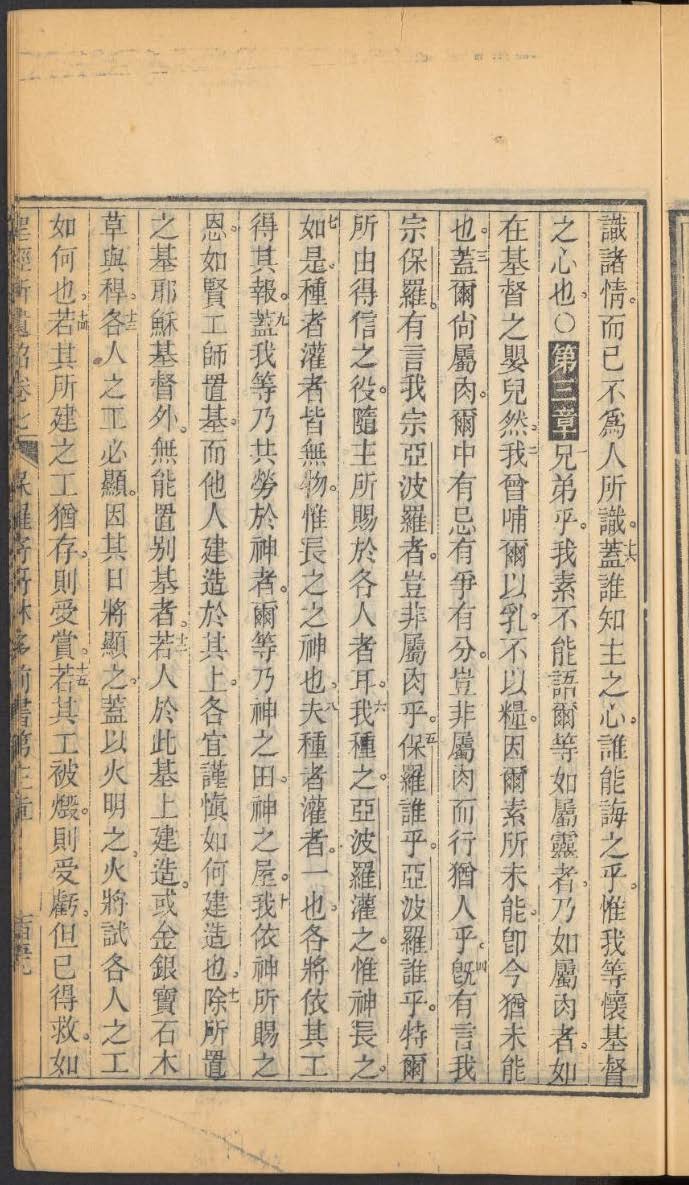 識諸情。而已不爲人所識。十六蓋誰知主之心。誰能誨之乎。惟我等懷基督
之心也。○第三章一兄弟乎。我素不能語爾等如屬靈者。乃如屬肉者。如
在基督之嬰兒然。二我曾哺爾以乳。不以糧。因爾素所未能。卽今猶未能
也。三蓋爾尙屬肉。爾中有忌有爭有分。豈非屬肉而行猶人乎。四旣有言我
宗保羅。有言我宗亞波羅者。豈非屬肉乎。五保羅誰乎。亞波羅誰乎。特爾
所由得信之役。隨主所賜於各人者耳。六我種之。亞波羅灌之。惟神長之。
七如是。種者灌者皆無物。惟長之之神也。八夫種者灌者。一也。各將依其工
得其報。九蓋我等乃共勞於神者。爾等乃神之田。神之屋。十我依神所賜之
恩。如賢工師置基。而他人建造於其上。各宜謹愼如何建造也。十一除所置
之基耶穌基督外。無能置别基者。十二若人於此基上建造。或金銀寶石木
草與稈。十三各人之工必顯。因其日將顯之。蓋以火明之。火將試各人之工
如何也。十四若其所建之工猶存。則受賞。十五若其工被燬。則受虧。但已得救。如
聖經新遺詔卷七 保羅寄哥林多前書第三章